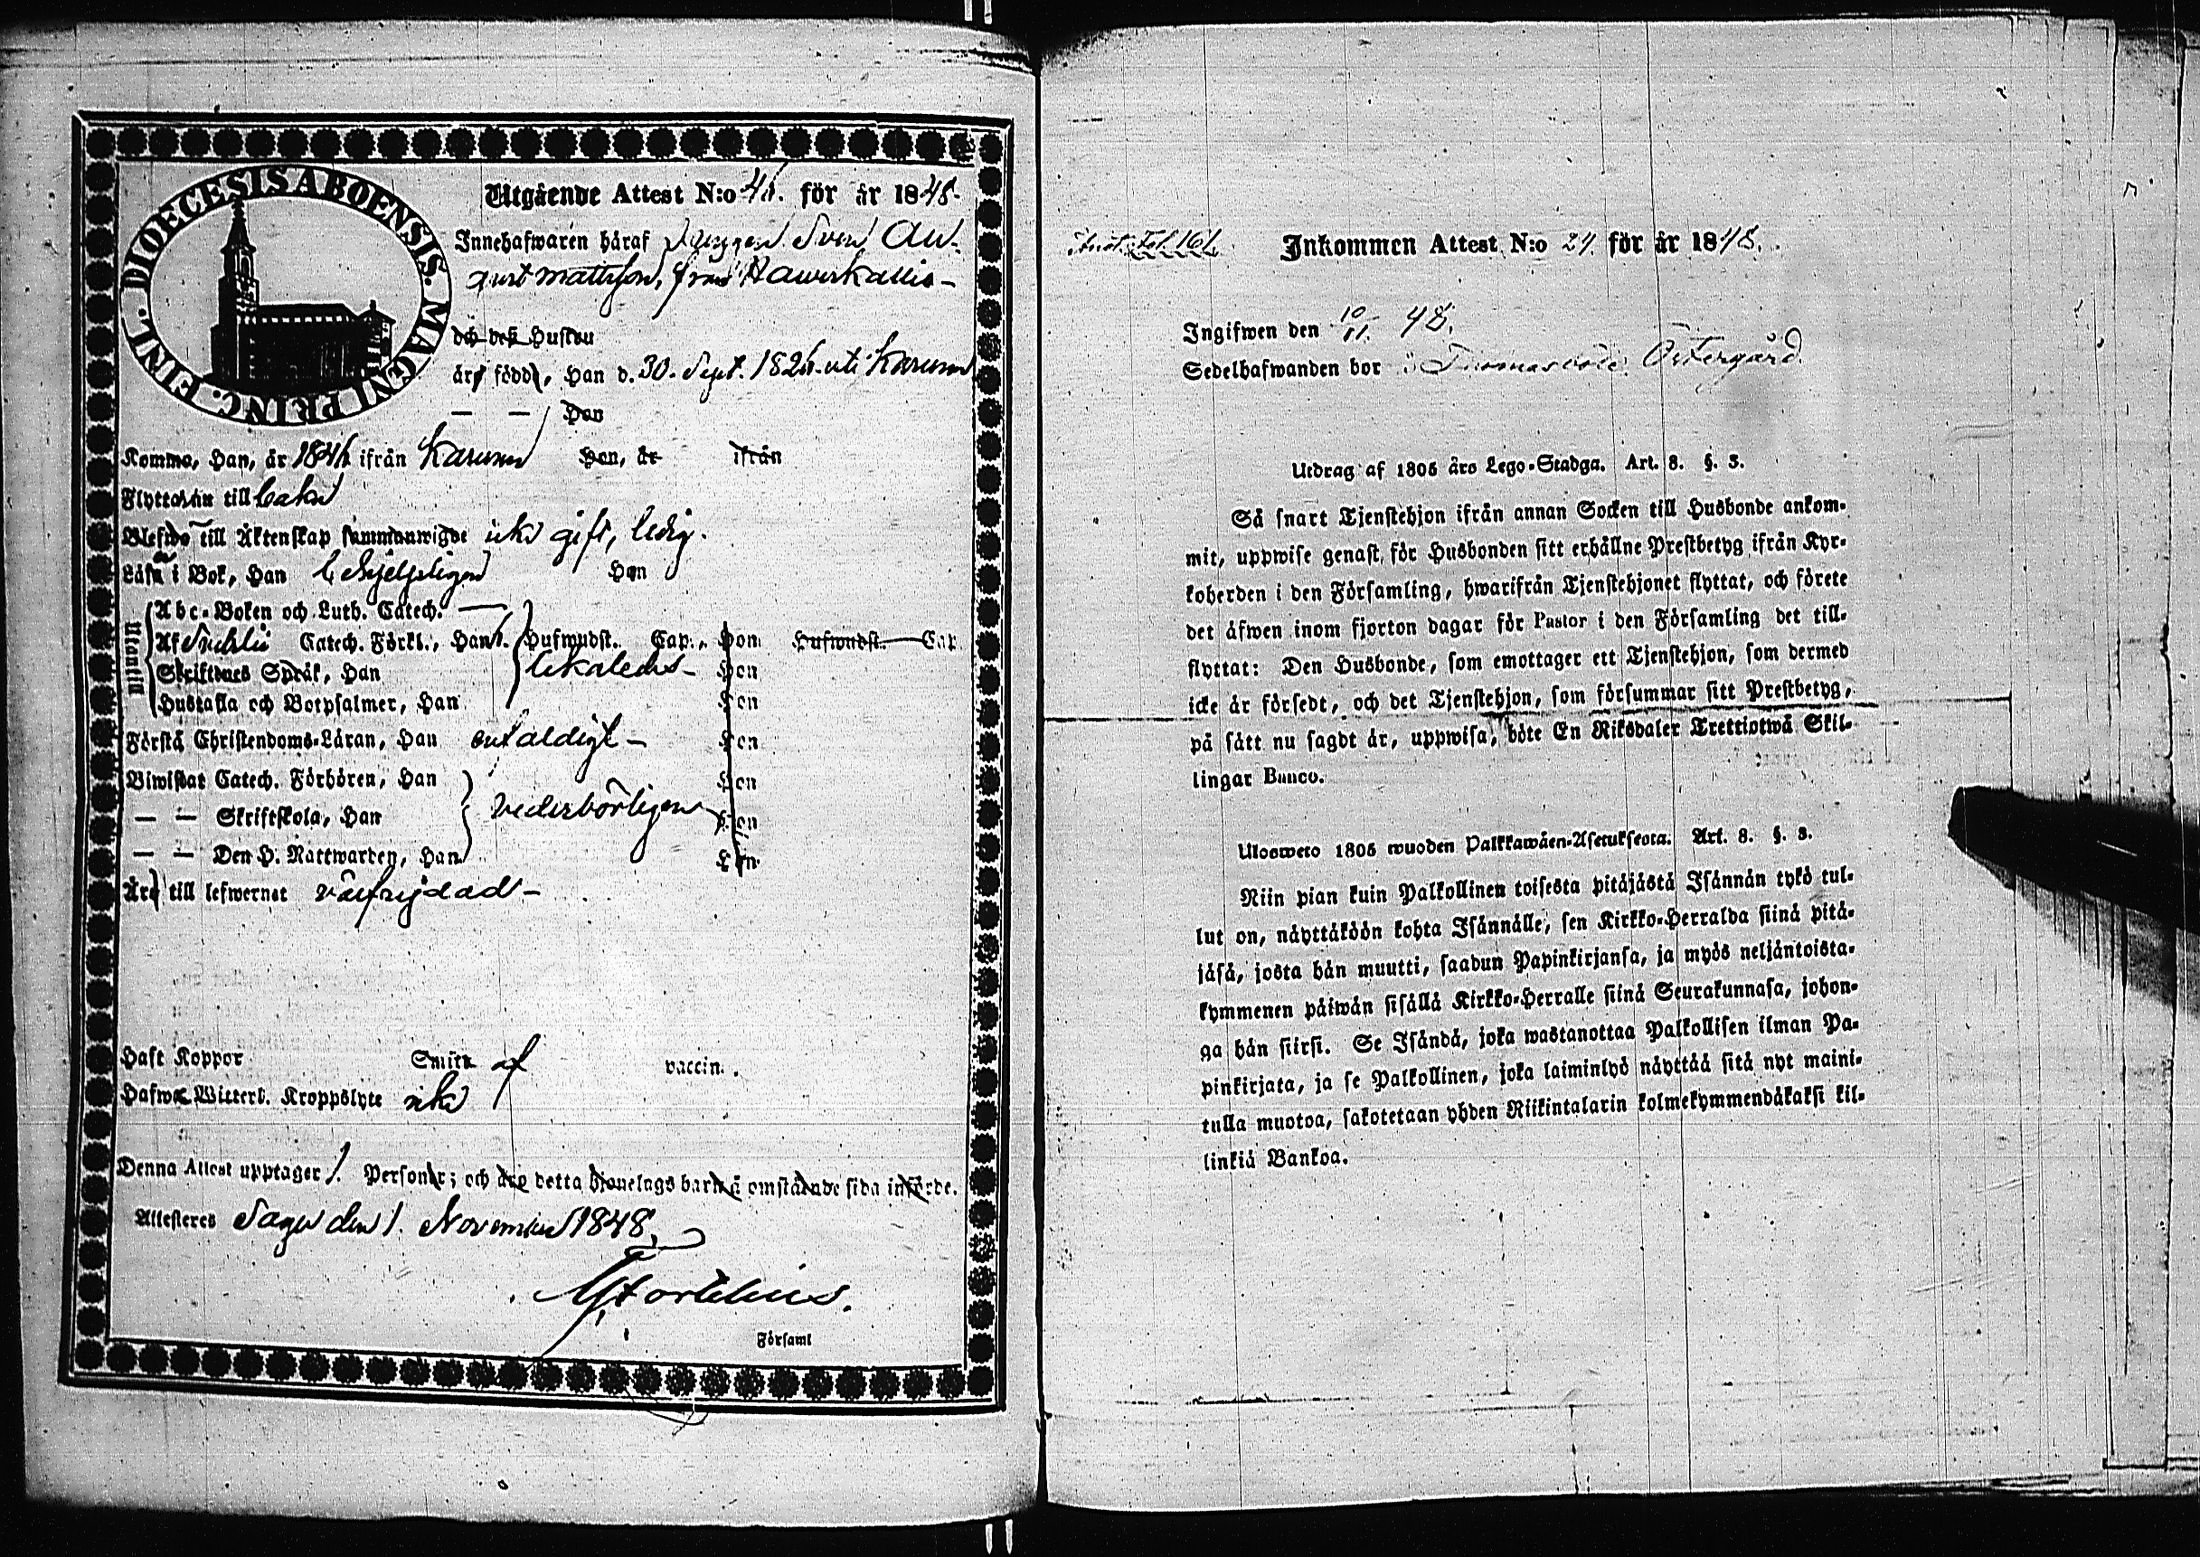 DIOECESIS ABOENSIS. MAGNI PRINC. FINL.
Utgående Attest N:o för år 1848.
Innehafwaren håraf Drengen Sven Au-
gust Mattsson, från
och des Hustru
äro födde, Han d. 30. Sept. 1826 uti Karuna
— — Hon
Komme, Han, år 1846 ifrån Karuna Hon, år ifrån
Flyttar han till
Blefwo till Äktenskap sammanwigde icke gift, ledig.
Läsa i Bok, Han behjelpligen Hon
Utantill
Abc-Boken och Luth. Catech. —
Af Svebelii Catech. Förkl., Han Hufwudst. Cap., Hon Hufwudst. Cap.
Skriftenes Språk, Han likaledes — Hon
Hustafla och Botpsalmer, Han Hon
Förstå Christendoms-Läran, Han enfaldigt — Hon
Biwistat Catech. Förhören, Han Hon
— — Skriftskola, Han vederbörligen Hon
— — Den H. Nattwarden, Han Hon
Äro till lefwernet välfrejdad —
Haft Koppor Smitt. af vaccin.
Hafwa Witterl. Kroppslyte icke
Denna Attest upptager 1. Personer; och äro detta hjonelags barn å omstående sida införde.
Attesteres Sagu den 1. November 1848.
Församl
Inkommen Attest N:o 24. för år 1848.
Ingifwen den 10/11. 48.
Sedelhafwanden bor i Thomasböle Östergård.
Utdrag af 1805 års Lego-Stadga. Art. 8. §. 3.
Så snart Tjenstehjon ifrån annan Socken till Husbonde ankom-
mit, uppwise genast för Husbonden sitt erhållne Prestbetyg ifrån Kyr-
koherden i den Församling, hwarifrån Tjenstehjonet flyttat, och förete
det åfwen inom fjorton dagar för Pastor i den Församling det till-
flyttat: Den Husbonde, som emottager ett Tjenstehjon, som dermed
icke är försedt, och det Tjenstehjon, som försummar sitt Prestbetyg,
på sått nu sagdt är, uppwisa, böte En Riksdaler Trettiotwå Skil-
lingar Banco.
Ulosweto 1805 wuoden Palkkawäen-Asetuksesta. Art. 8. §. 3.
Niin pian kuin Palkollinen toisesta pitäjästä Isännän tykö tul-
lut on, näyttäköön kohta Isännälle, sen Kirkko-Herralda siinä pitä-
jäsä, josta hän muutti, saadun Papinkirjansa, ja myös neljäntoista-
kymmenen päiwän sisällä Kirkko-Herralle siinä Seurakunnasa, johon-
ga hän siirsi. Se Isändä, joka wastanottaa Palkollisen ilman Pa-
pinkirjata, ja se Palkollinen, joka laiminlyö näyttää sitä nyt maini-
tulla muotoa, sakotetaan yhden Riikintalarin kolmekymmendäkaksi kil-
linkiä Bankoa.